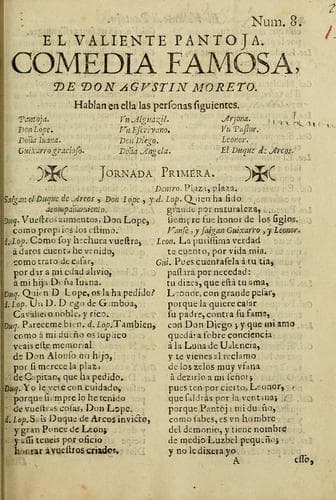 Num. 8.
EL VALIENTE PANTOJA.
COMEDIA FAMOSA,
DE DON AGVSTIN MORETO.
Hablan en ella las personas siguientes.
Pantoja.
Don Lope.
Doña Iuana.
Guixarro gracioso.
Vn Alguazil.
Vn Escrivano.
Don Diego.
Doña Angela.
Arjona.
Vn Pastor.
Leonor.
El Duque de Arcos.
JORNADA PRIMERA.
Salgan el Duque de Arcos, Don Lope, y
acompañamiento.
Duq. Vuestros aumentos, Don Lope,
como proprios los estimo.
d. Lop. Como soy hechura vuestra,
à daros cuenta he venido,
como trato de casar,
por dar a mi edad alivio,
à mi hija Doña Iuana.
Duq. Quien D. Lope, os la ha pedido?
d. Lop. Un D. Diego de Gamboa,
Cavallero noble, y rico.
Duq. Pareceme bien. d. Lop. Tambien,
como à mi dueño os suplico
veais este memorial
de Don Alonso mi hijo,
por si merece la plaza
de Capitan, que ha pedido.
Duq. Yo le verè con cuidado,
porque siempre lo he tenido
de vuestras cosas, Don Lope.
d. Lop. Sois Duque de Arcos invicto,
y gran Ponce de Leon;
y assi teneis por oficio
honrar à vuestros criados.
Dentro. Plaza, plaza.
d. Lop. Quien ha sido
grande por naturaleza,
siempre fue honor de los siglos.
Vanse, y salgan Guixarro, y Leonor.
Leon. La purissima verdad
te cuento, por vida mia.
Gui. Pues cuentasela à tu tia,
passarà por necedad:
tu dizes, que està tu ama,
Leonor, con grande pesar,
porque la quiere casar
su padre, contra su fama,
con Don Diego; y que mi amo
quedará sobre conciencia
à la Luna de Valencia,
y te vienes al reclamo
de los zelos muy ufana
à dezirlo à mi señor;
pues ten por cierto, Leonor,
que saldràs por la ventana;
porque Pantoja mi dueño,
como sabes, es vn hombre
del demonio, y tiene nombre
de medio Luzbel pequeño;
y no le dixera yo
A
esso,